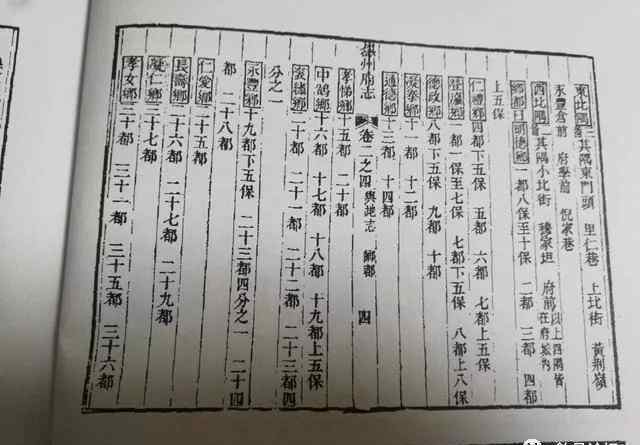 東北隅圖三其隅東門頭 里仁巷 上北街 黃荆嶺
永豐倉前 府學前 倪家巷
西北隅圖一其隅小北街 穆家坦 府前以上四隅皆在府城內
鄉都曰明德鄉一都八保至十保 二都 三都 四都
上五保
仁禮鄉四都下五保 五都 六都 七都上五保
登瀛鄉一都一保至七保 七都下五保 八都上八保
德政鄉八都下五保 九都 十都
鄉十一都 十二都
通德鄉十三都 十四都
徽州府志 卷二之四輿地志 鄉都 四
孝悌鄉十五都 二十都
中鵠鄉十六都 十七都 十八都 十九都上五保
鄉二十一都 二十二都 二十三都四
分之一
永豐鄉十九都下五保 二十三都四分之一 二十四
都 二十八都
仁愛鄉二十五都
長壽鄉二十六都 二十七都 二十九都
凝仁鄉三十七都
孝女鄉三十都 三十一都 三十五都 三十六都